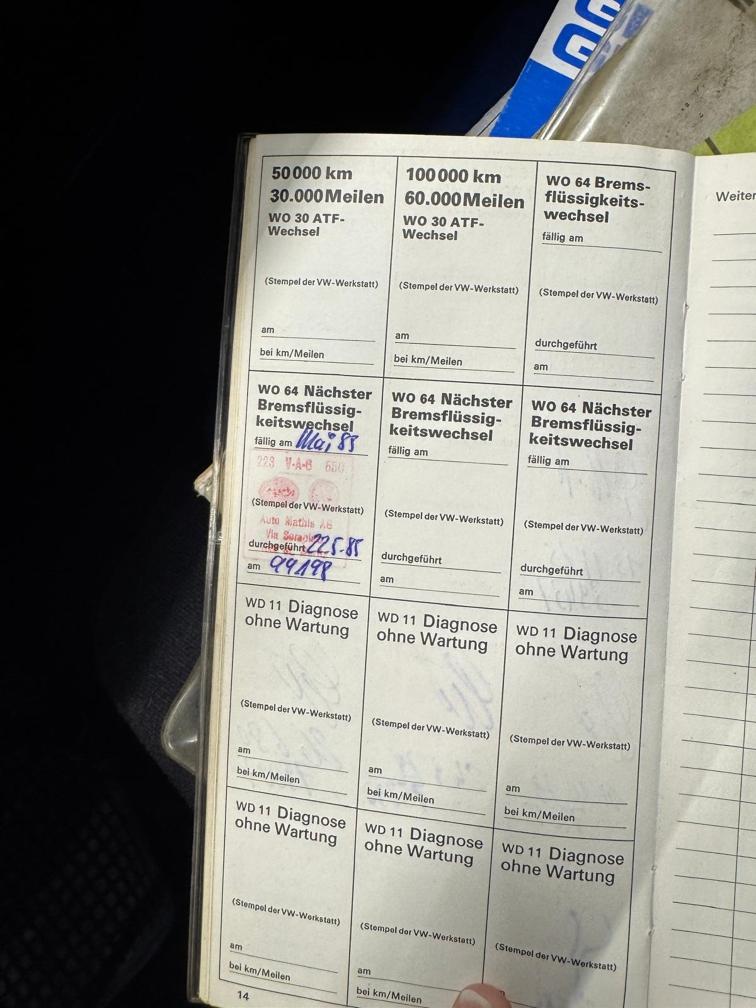 50000 km
30.000 Meilen
WO 30 ATF-
Wechsel
(Stempel der VW-Werkstatt)
am
bei km/Meilen
100000 km
60.000 Meilen
WO 30 ATF-
Wechsel
(Stempel der VW-Werkstatt)
am
bei km/Meilen
WO 64 Brems-
flüssigkeits-
wechsel
fällig am
(Stempel der VW-Werkstatt)
durchgeführt
am
WO 64 Nächster
Bremsflüssig-
keitswechsel
fällig am Mai 85
223 V·A·G 650
(Stempel der VW-Werkstatt)
Auto Mathis AG
Via
durchgeführt 22.5.85
am 94198
WO 64 Nächster
Bremsflüssig-
keitswechsel
fällig am
(Stempel der VW-Werkstatt)
durchgeführt
am
WO 64 Nächster
Bremsflüssig-
keitswechsel
fällig am
(Stempel der VW-Werkstatt)
durchgeführt
am
WD 11 Diagnose
ohne Wartung
(Stempel der VW-Werkstatt)
am
bei km/Meilen
WD 11 Diagnose
ohne Wartung
(Stempel der VW-Werkstatt)
am
bei km/Meilen
WD 11 Diagnose
ohne Wartung
(Stempel der VW-Werkstatt)
am
bei km/Meilen
WD 11 Diagnose
ohne Wartung
(Stempel der VW-Werkstatt)
am
bei km/Meilen
WD 11 Diagnose
ohne Wartung
(Stempel der VW-Werkstatt)
am
bei km/Meilen
WD 11 Diagnose
ohne Wartung
(Stempel der VW-Werkstatt)
14
Weiter